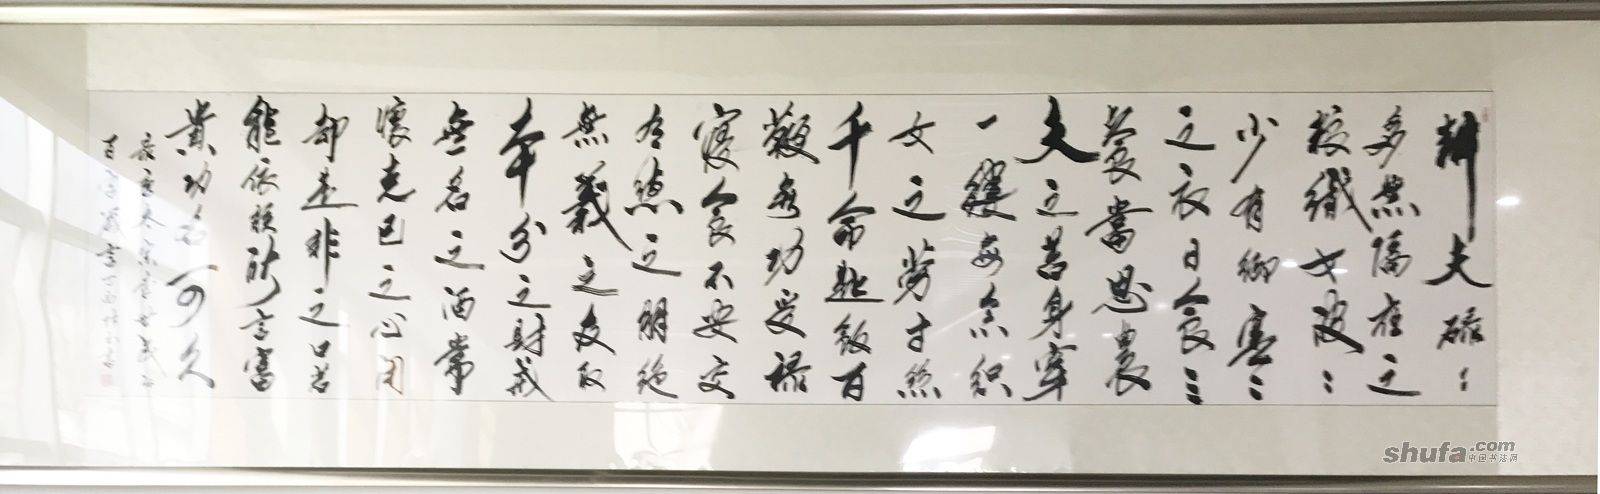 耕夫碌々
多無隔夜之
粮織女波々
少有御寒
之衣日食三
餐當思農
夫之苦身穿
一縷每念織
女之勞寸絲
千命匙飯百
鞭無功受祿
寢食不安交
有德之朋絕
無義之友取
本分之財戒
無名之酒常
懷克己之心閉
却是非之口若
能依朕所言富
貴功名可久
录唐太宗
百字箴
shufa.com
中国书法网